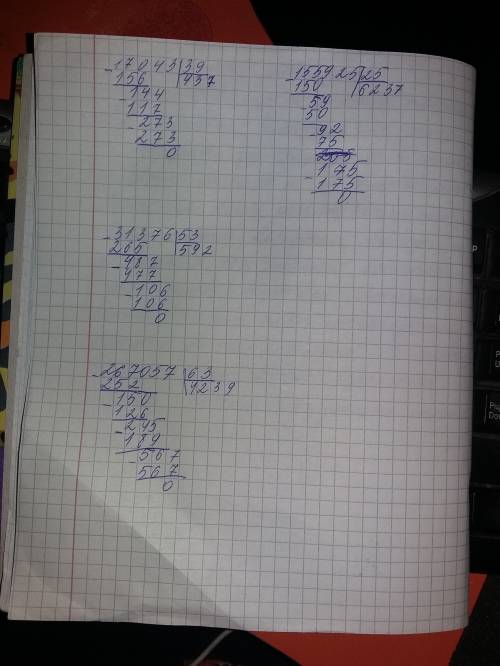 -17043|39
156 437
-144
117
-273
273
0
-155925|25
150 6237
-59
50
-92
75
-175
175
0
-31376|53
265 592
-487
477
-106
106
0
-267057|63
252 4239
-150
126
-245
189
-567
567
0